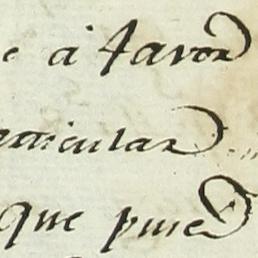 e à favor
articular
que pued